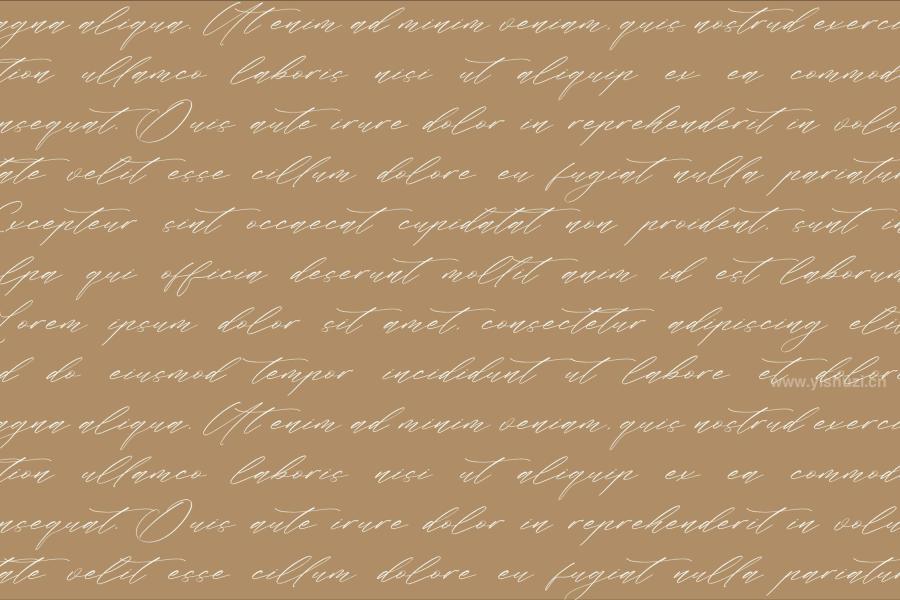 agna aliqua. Ut enim ad minim veniam, quis nostrud exerci
tion ullamco laboris nisi ut aliquip ex ea commod
nsequat. Duis aute irure dolor in reprehenderit in volu
tate velit esse cillum dolore eu fugiat nulla pariatur
Excepteur sint occaecat cupidatat non proident, sunt in
lpa qui officia deserunt mollit anim id est laborum
Lorem ipsum dolor sit amet, consectetur adipiscing elit
d do eiusmod tempor incididunt ut labore et dolore
www.yishuzi.cn
agna aliqua. Ut enim ad minim veniam, quis nostrud exerci
tion ullamco laboris nisi ut aliquip ex ea commod
nsequat. Duis aute irure dolor in reprehenderit in volu
tate velit esse cillum dolore eu fugiat nulla pariatur